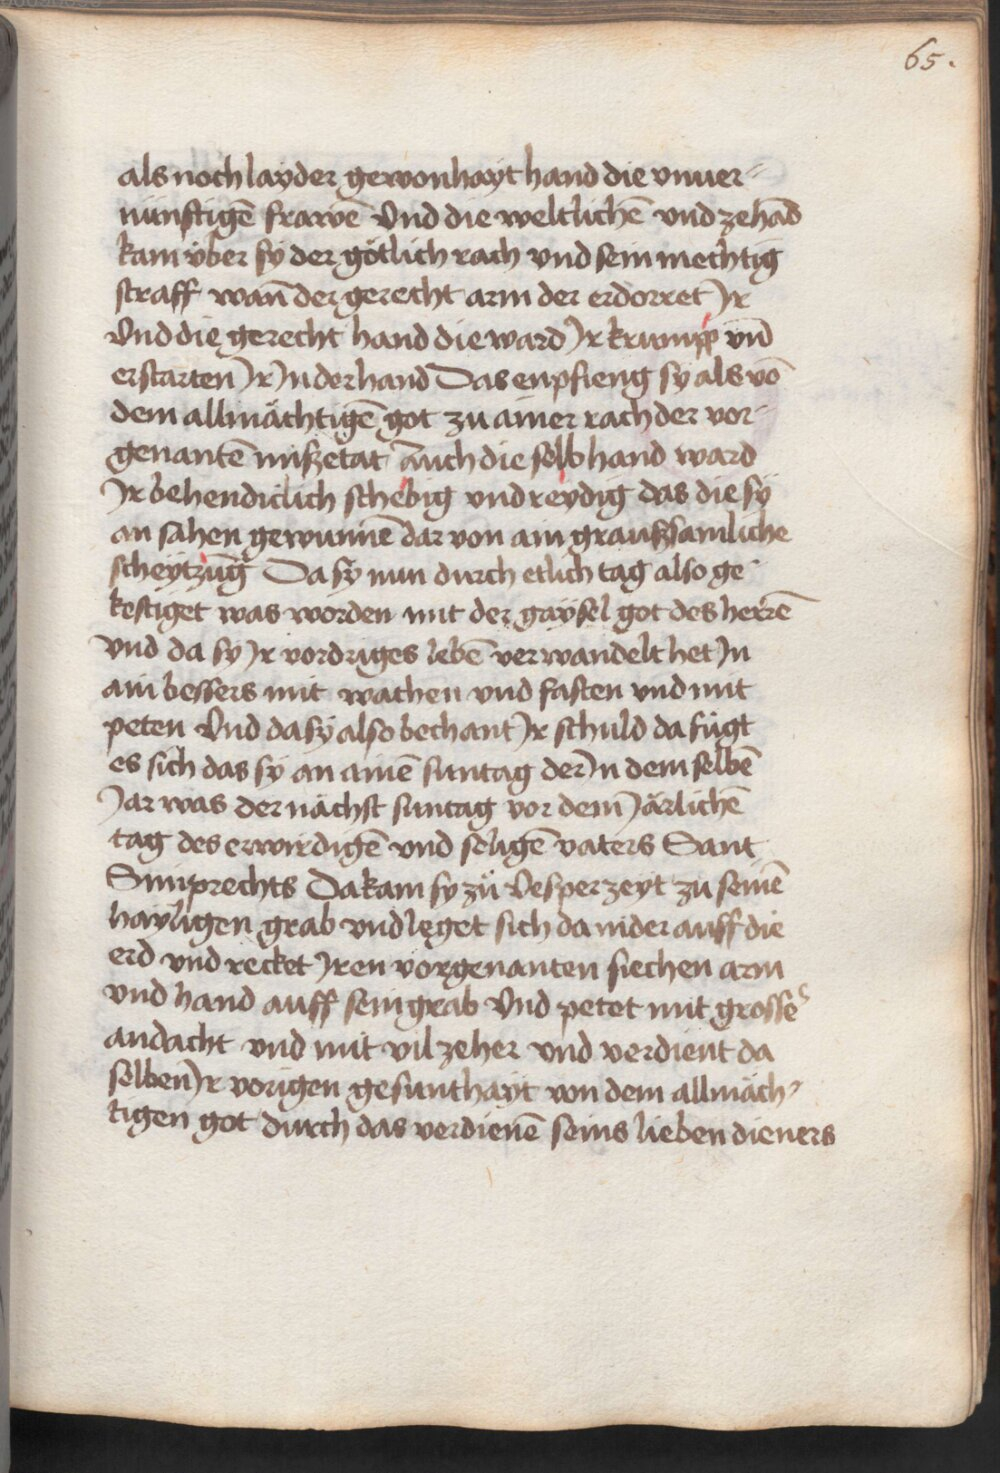 65.
als noch layder gewonhayt hand die vnuer-
nünftigē frawē Vnd die weltlichē vnd zehād
kam über sy der götlich rach vnd sein mechtig
straff wañ der gerecht arm der erdorret Jr
Vnd die gerecht hand die ward Jr krumpp vñ
erstarten Jr Jn der hand Das enpfieng sy als vō
dem allmächtigē got zu ainer rach der vor-
genantē missetat Auch die selb hand ward
Jr behendicklich schebig vnd reydig das die sy
an sahen gewunnē dar von ain graussamliche
scheytzūg Da sy nun durch etlich tag also ge-
kestiget was worden mit der gaysel got des herrē
vnd da sy Jr vordriges lebē verwandelt het Jn
ain bessers mit wachen vnd fasten vnd mit
peten Vnd da sy also bechant Jr schuld da fügt
es sich das sy an ainē suntag der Jn dem selbē
Jar was der nächst suntag vor dem Järlichē
tag des erwirdigē vnd seligē vaters Sant
Simprechts Da kam sy zů Vesperzeyt zu seinē
hayligen grab vnd leget sich da nider auff die
erd vnd recket Jren vorgenanten siechen arm
vnd hand auff sein grab Vnd petet mit grosse
andacht vnd mit vil zeher vnd verdient da
selben Jr vorigen gesunthayt von dem allmäch-
tigen got durch das verdienē seins lieben dieners